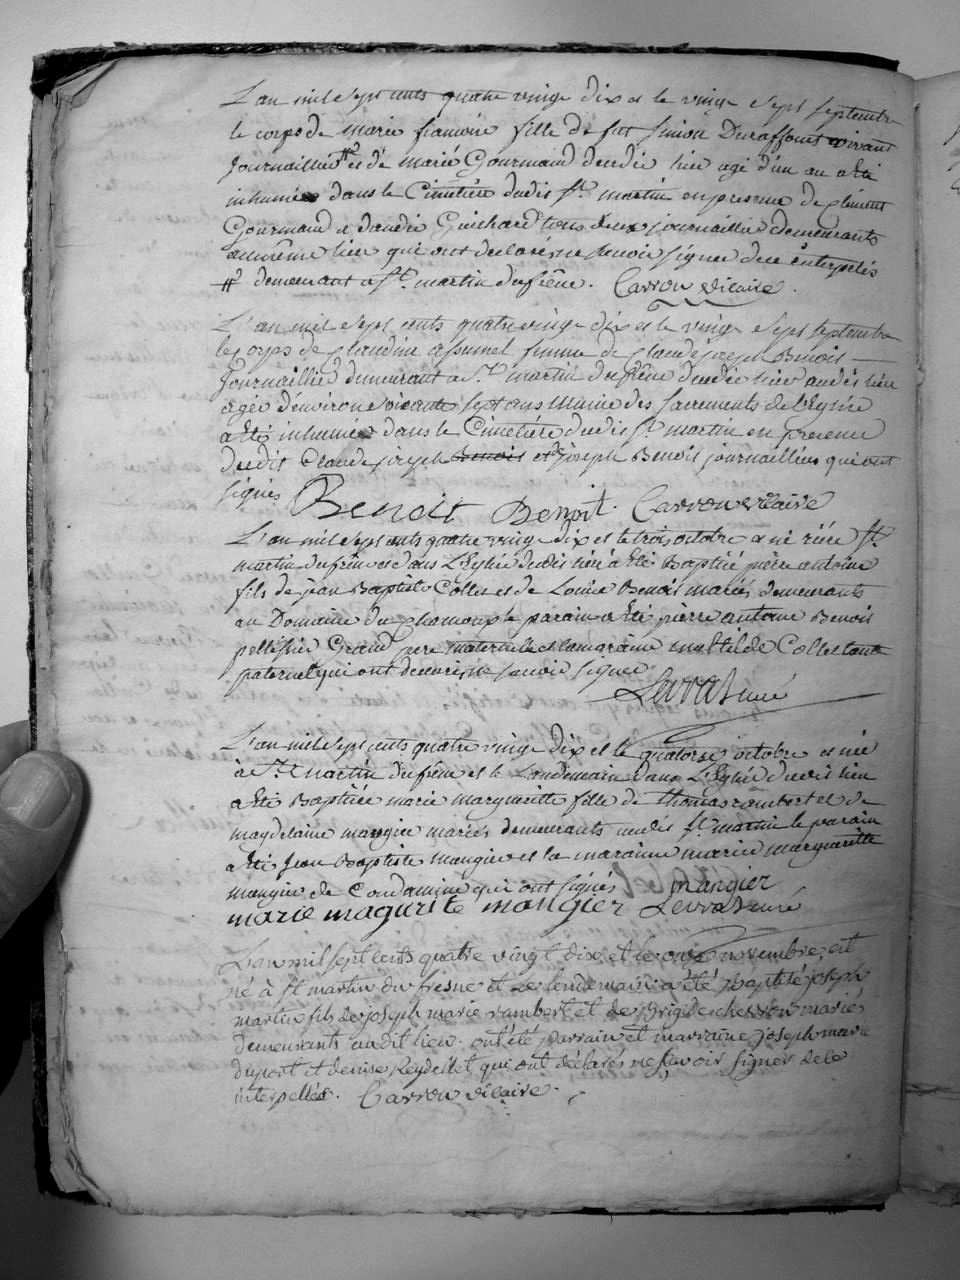 L'an mil sept cents quatre vingt dix et le vingt sept septembre
le corps de marie francoise fille de fut Simon Duraffourt vivant
Journaillier # et de Marie Gourmand decedée hier agé d'un an a été
inhumée dans le Cimetiere dudit St. martin en presence de
Gourmand et d'andré Guichard tous deux journaillier demeurants
au même lieu qui ont declarés ne scavoir signer de ce enterpelés
# demeurant a St. martin dufrêne. Carron vicaire.
L'an mil sept cents quatre vingt dix et le vingt sept septembre
le corps de Claudine femme de Claude joseph Benoit
Journaillier demeurant a St. martin du frêne decedée hier audit lieu
agée d'environ soixante sept ans munie des Sacrements de l'Eglise
a été inhumée dans le Cimetiere dudit St. martin en presence
dudit Claude joseph Benoit et de joseph Benoit journailliers qui ont
signés Benoit Benoit. Carron vicaire
L'an mil sept cents quatre vingt dix et le trois octobre a né riere St.
martin du frêne et dans L'Eglise dudit lieu a été Baptisé pierre antoine
fils de jean Baptiste Collet et de Louise Benoit mariés demeurants
au Domaine du parain a été pierre antoine Benoit
pellissier Grand pere maternel et la maraine Collet tante
paternel qui ont declarés ne scavoir signer
Levrat curé
L'an mil sept cents quatre vingt dix et le quatorse octobre est née
à St. martin du frêne et le Landemain dans L'Eglise dudit lieu
a été Baptisée marie margueritte fille de thomas rombert et de
magdelaine mangier mariés demeurants audit St. martin le parain
a été Jean Baptiste mangier et la maraine marie margueritte
mangier de Condamine qui ont signés mangier
marie magurite mangier Levrat curé
L'an mil sept cents quatre vingt dix et le onze novembre, est
né à St martin du fresne et le lendemain a été Baptisé joseph
martin fils de joseph marie rambert et de Brigide cherron mariés
demeurants audit lieu. ont été parrain et marraine joseph marie
duport et denise Reydellet qui ont déclarés ne scavoir signer de ce
interpellés. Carron vicaire.